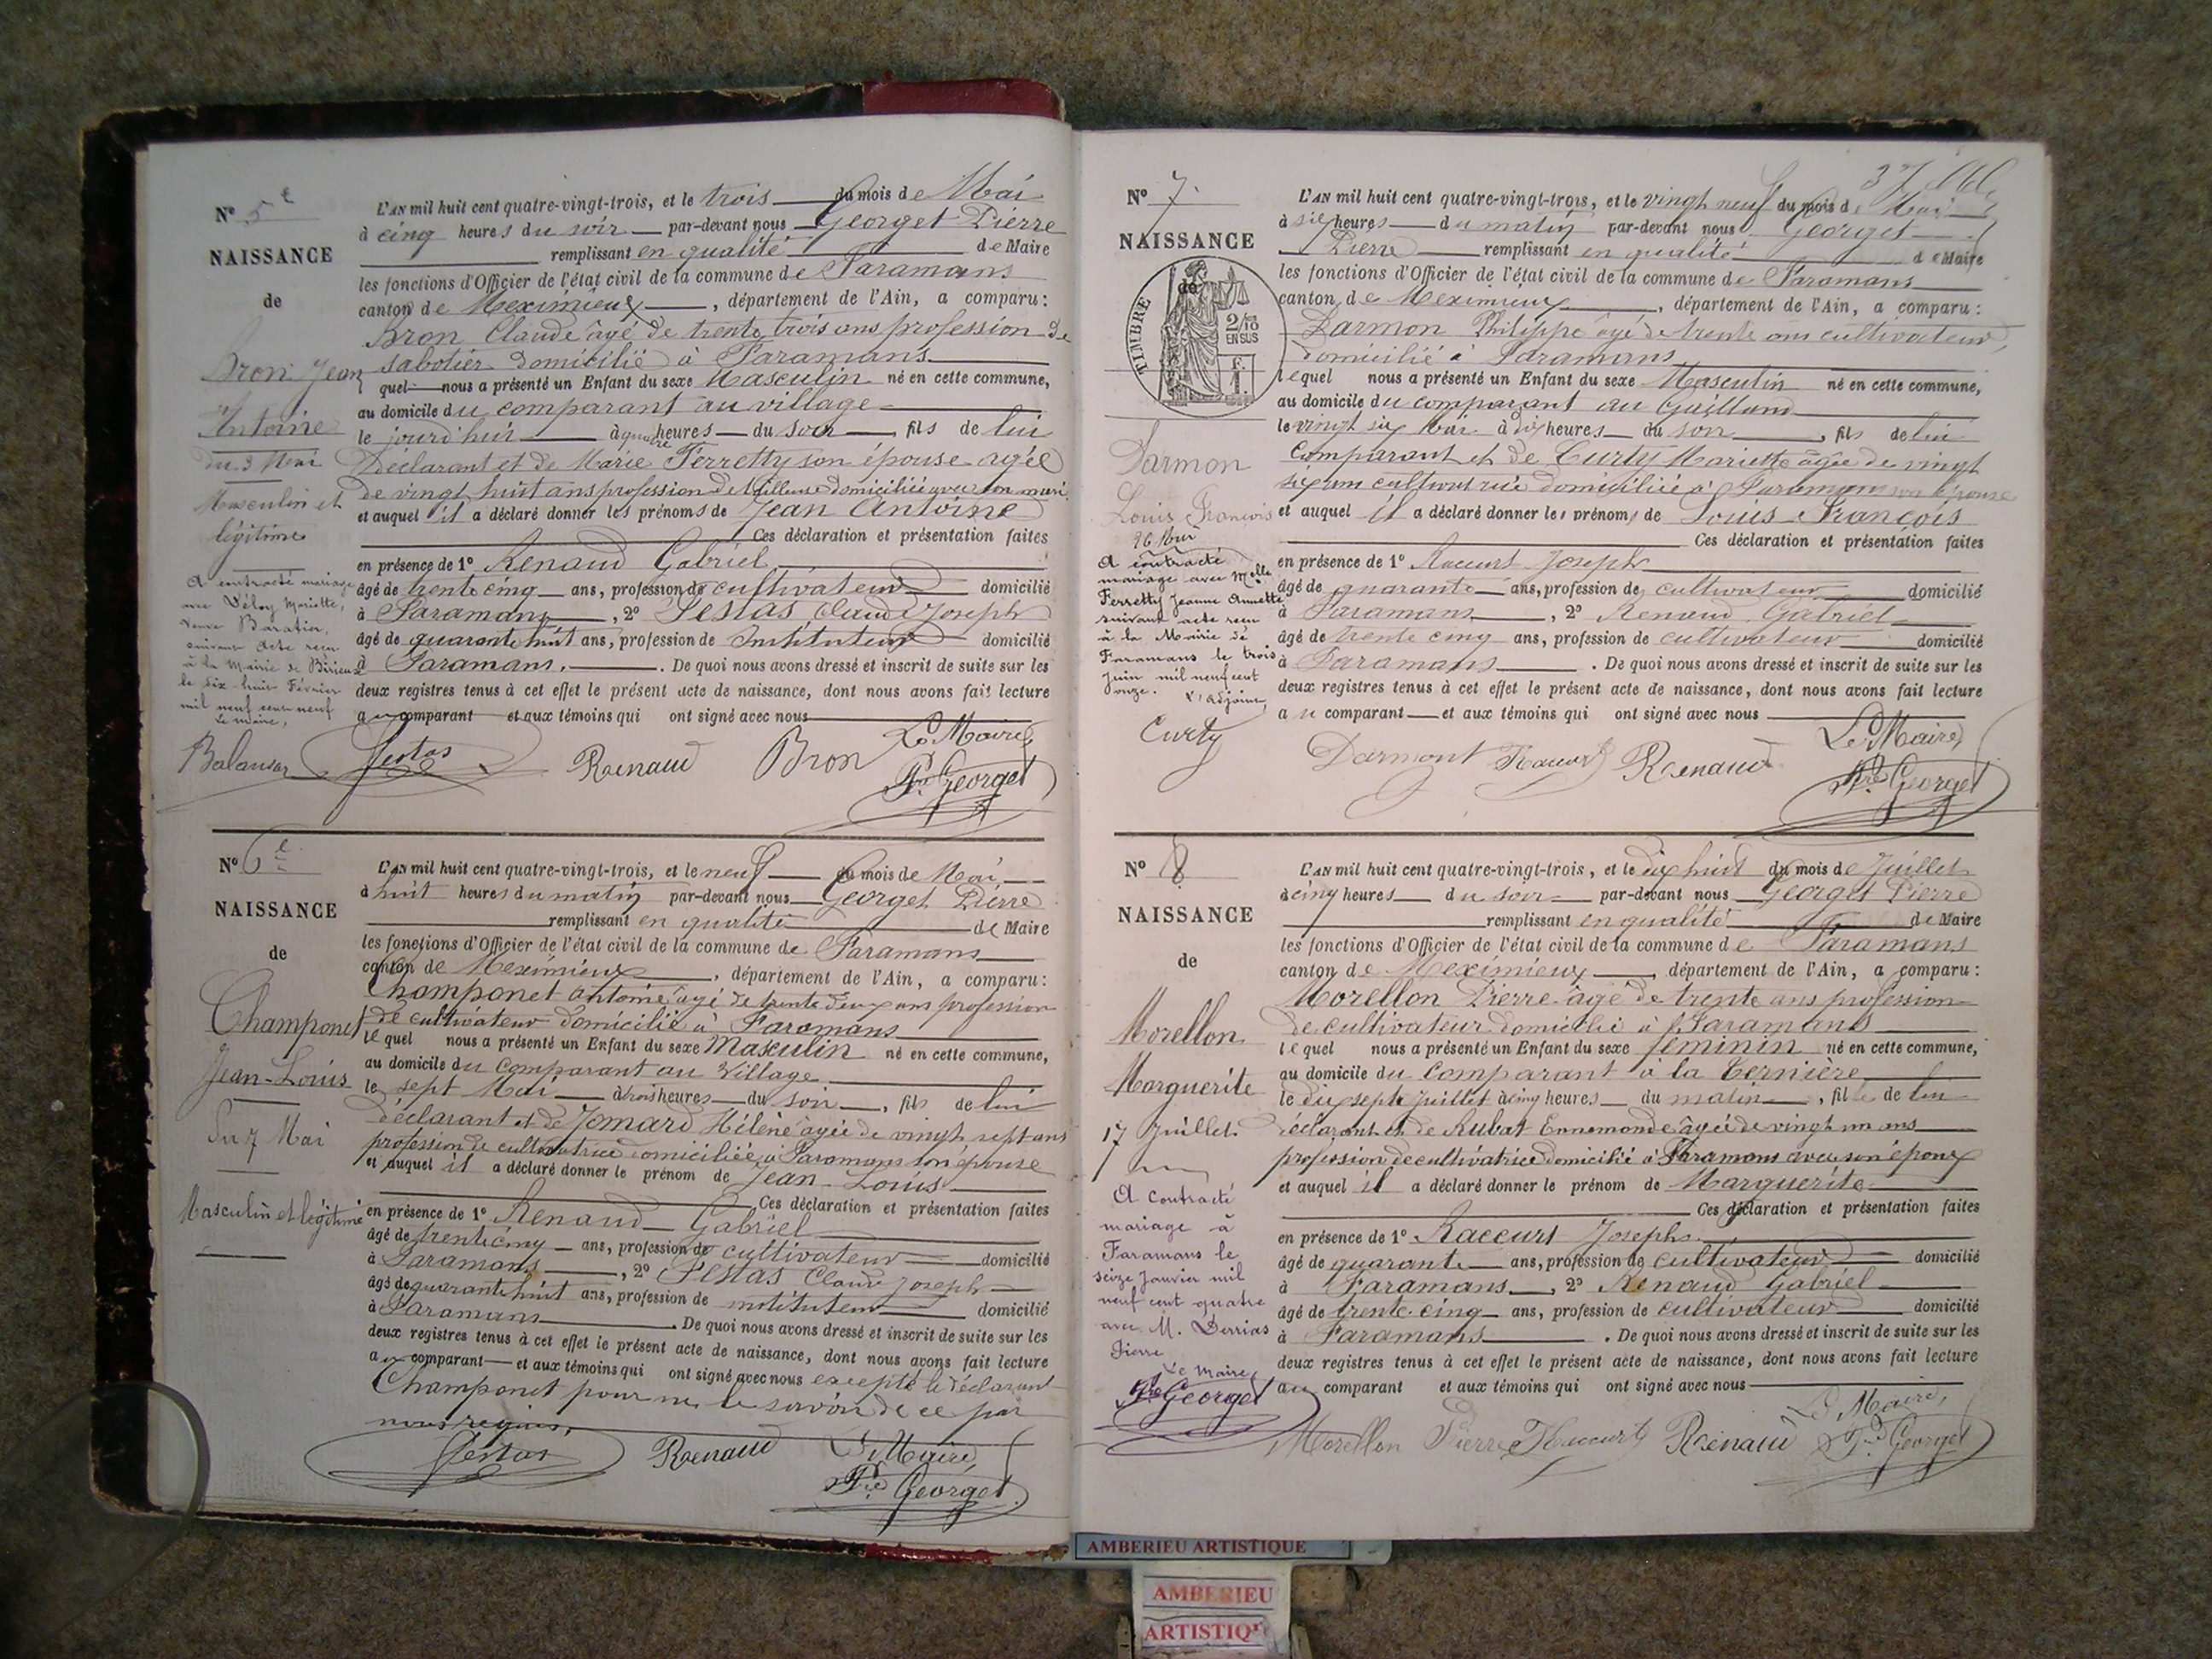 N° 5e
NAISSANCE
de
Bron Jean
Antoine
du 3 Mai
Masculin et
légitime
A contracté mariage
avec Mariette,
veuve Baratier,
suivant acte reçu
à la Mairie de Birieux
le dix huit Février
mil neuf cent neuf
Le Maire,
Balansa
L'AN mil huit cent quatre-vingt-trois, et le trois du mois de Mai
à cinq heures du soir par-devant nous Georget Pierre
remplissant en qualité de Maire
les fonctions d'Officier de l'état civil de la commune de Faramans
canton de Meximieux, département de l'Ain, a comparu:
Bron Claude âgé de trente trois ans profession de
sabotier domicilié à Faramans
quel nous a présenté un Enfant du sexe Masculin né en cette commune,
au domicile du comparant au village
le jourd'hui à quatre heures du soir, fils de lui
Déclarant et de Marie Ferretty son épouse âgée
de vingt huit ans profession de tailleuse domiciliée avec son mari
et auquel il a déclaré donner les prénoms de Jean Antoine
Ces déclaration et présentation faites
en présence de 1° Renaud Gabriel
âgé de trente cinq ans, profession de cultivateur domicilié
à Faramans, 2° Pestas Claude Joseph
âgé de quarante huit ans, profession de Instituteur domicilié
à Faramans. De quoi nous avons dressé et inscrit de suite sur les
deux registres tenus à cet effet le présent acte de naissance, dont nous avons fait lecture
au comparant et aux témoins qui ont signé avec nous
Pestas Renaud Bron Le Maire,
Pre Georget
N° 6e
NAISSANCE
de
Champonet
Jean-Louis
Du 7 Mai
Masculin et légitime
L'AN mil huit cent quatre-vingt-trois, et le neuf du mois de Mai
à huit heures du matin par-devant nous Georget Pierre
remplissant en qualité de Maire
les fonctions d'Officier de l'état civil de la commune de Faramans
canton de Meximieux, département de l'Ain, a comparu:
Champonet Antoine âgé de trente deux ans profession
de cultivateur domicilié à Faramans
lequel nous a présenté un Enfant du sexe Masculin né en cette commune,
au domicile du comparant au Village
le sept Mai à trois heures du soir, fils de lui
déclarant et de Jomard Hélène âgée de vingt sept ans
profession de cultivatrice domiciliée à Faramans son épouse
et auquel il a déclaré donner le prénom de Jean-Louis
Ces déclaration et présentation faites
en présence de 1° Renaud Gabriel
âgé de trente cinq ans, profession de cultivateur domicilié
à Faramans, 2° Pestas Claude Joseph
âgé de quarante huit ans, profession de instituteur domicilié
à Faramans. De quoi nous avons dressé et inscrit de suite sur les
deux registres tenus à cet effet le présent acte de naissance, dont nous avons fait lecture
au comparant et aux témoins qui ont signé avec nous excepté le déclarant
Champonet pour ne le savoir de ce par
nous requis,
Pestas Renaud Le Maire,
Pre Georget
N° 7
NAISSANCE
de
TIMBRE
2/10
EN SUS
F.
1.
Darmon
Louis François
26 Mai
A contracté
mariage avec Melle
Ferretty Jeanne Annette
suivant acte reçu
à la Mairie de
Faramans le trois
Juin mil neuf cent
onze.
L'adjoint,
Curty
L'AN mil huit cent quatre-vingt-trois, et le vingt neuf du mois de Mai
à six heures du matin par-devant nous Georget
Pierre remplissant en qualité de Maire
les fonctions d'Officier de l'état civil de la commune de Faramans
canton de Meximieux, département de l'Ain, a comparu:
Darmon Philippe âgé de trente ans cultivateur,
domicilié à Faramans
lequel nous a présenté un Enfant du sexe Masculin né en cette commune,
au domicile du comparant au
le vingt six Mai à dix heures du soir, fils de lui
Comparant et de Curty Mariette âgée de vingt
six ans cultivatrice domiciliée à Faramans son épouse
et auquel il a déclaré donner les prénoms de Louis François
Ces déclaration et présentation faites
en présence de 1° Raccurt Joseph
âgé de quarante ans, profession de cultivateur domicilié
à Faramans, 2° Renaud Gabriel
âgé de trente cinq ans, profession de cultivateur domicilié
à Faramans. De quoi nous avons dressé et inscrit de suite sur les
deux registres tenus à cet effet le présent acte de naissance, dont nous avons fait lecture
au comparant et aux témoins qui ont signé avec nous
Darmont Raccurt Renaud Le Maire,
Pre Georget
N° 8
NAISSANCE
de
Morellon
Marguerite
17 Juillet
A contracté
mariage à
Faramans le
seize Janvier mil
neuf cent quatre
avec M. Derrias
Pierre
Le Maire,
Pre Georget
L'AN mil huit cent quatre-vingt-trois, et le dix huit du mois de Juillet
à cinq heures du soir par-devant nous Georget Pierre
remplissant en qualité de Maire
les fonctions d'Officier de l'état civil de la commune de Faramans
canton de Meximieux, département de l'Ain, a comparu:
Morellon Pierre âgé de trente ans profession
de cultivateur domicilié à Faramans
lequel nous a présenté un Enfant du sexe féminin né en cette commune,
au domicile du comparant à la Ternière
le dix sept juillet à cinq heures du matin, fille de lui
déclarant et de Rubat Ennemonde âgée de vingt un ans
profession de cultivatrice domicilié à Faramans avec son époux
et auquel il a déclaré donner le prénom de Marguerite
Ces déclaration et présentation faites
en présence de 1° Raccurt Joseph
âgé de quarante ans, profession de cultivateur domicilié
à Faramans, 2° Renaud Gabriel
âgé de trente cinq ans, profession de cultivateur domicilié
à Faramans. De quoi nous avons dressé et inscrit de suite sur les
deux registres tenus à cet effet le présent acte de naissance, dont nous avons fait lecture
au comparant et aux témoins qui ont signé avec nous
Morellon Pierre Raccurt Renaud Le Maire,
Pre Georget
AMBERIEU ARTISTIQUE
AMBERIEU
ARTISTIQ